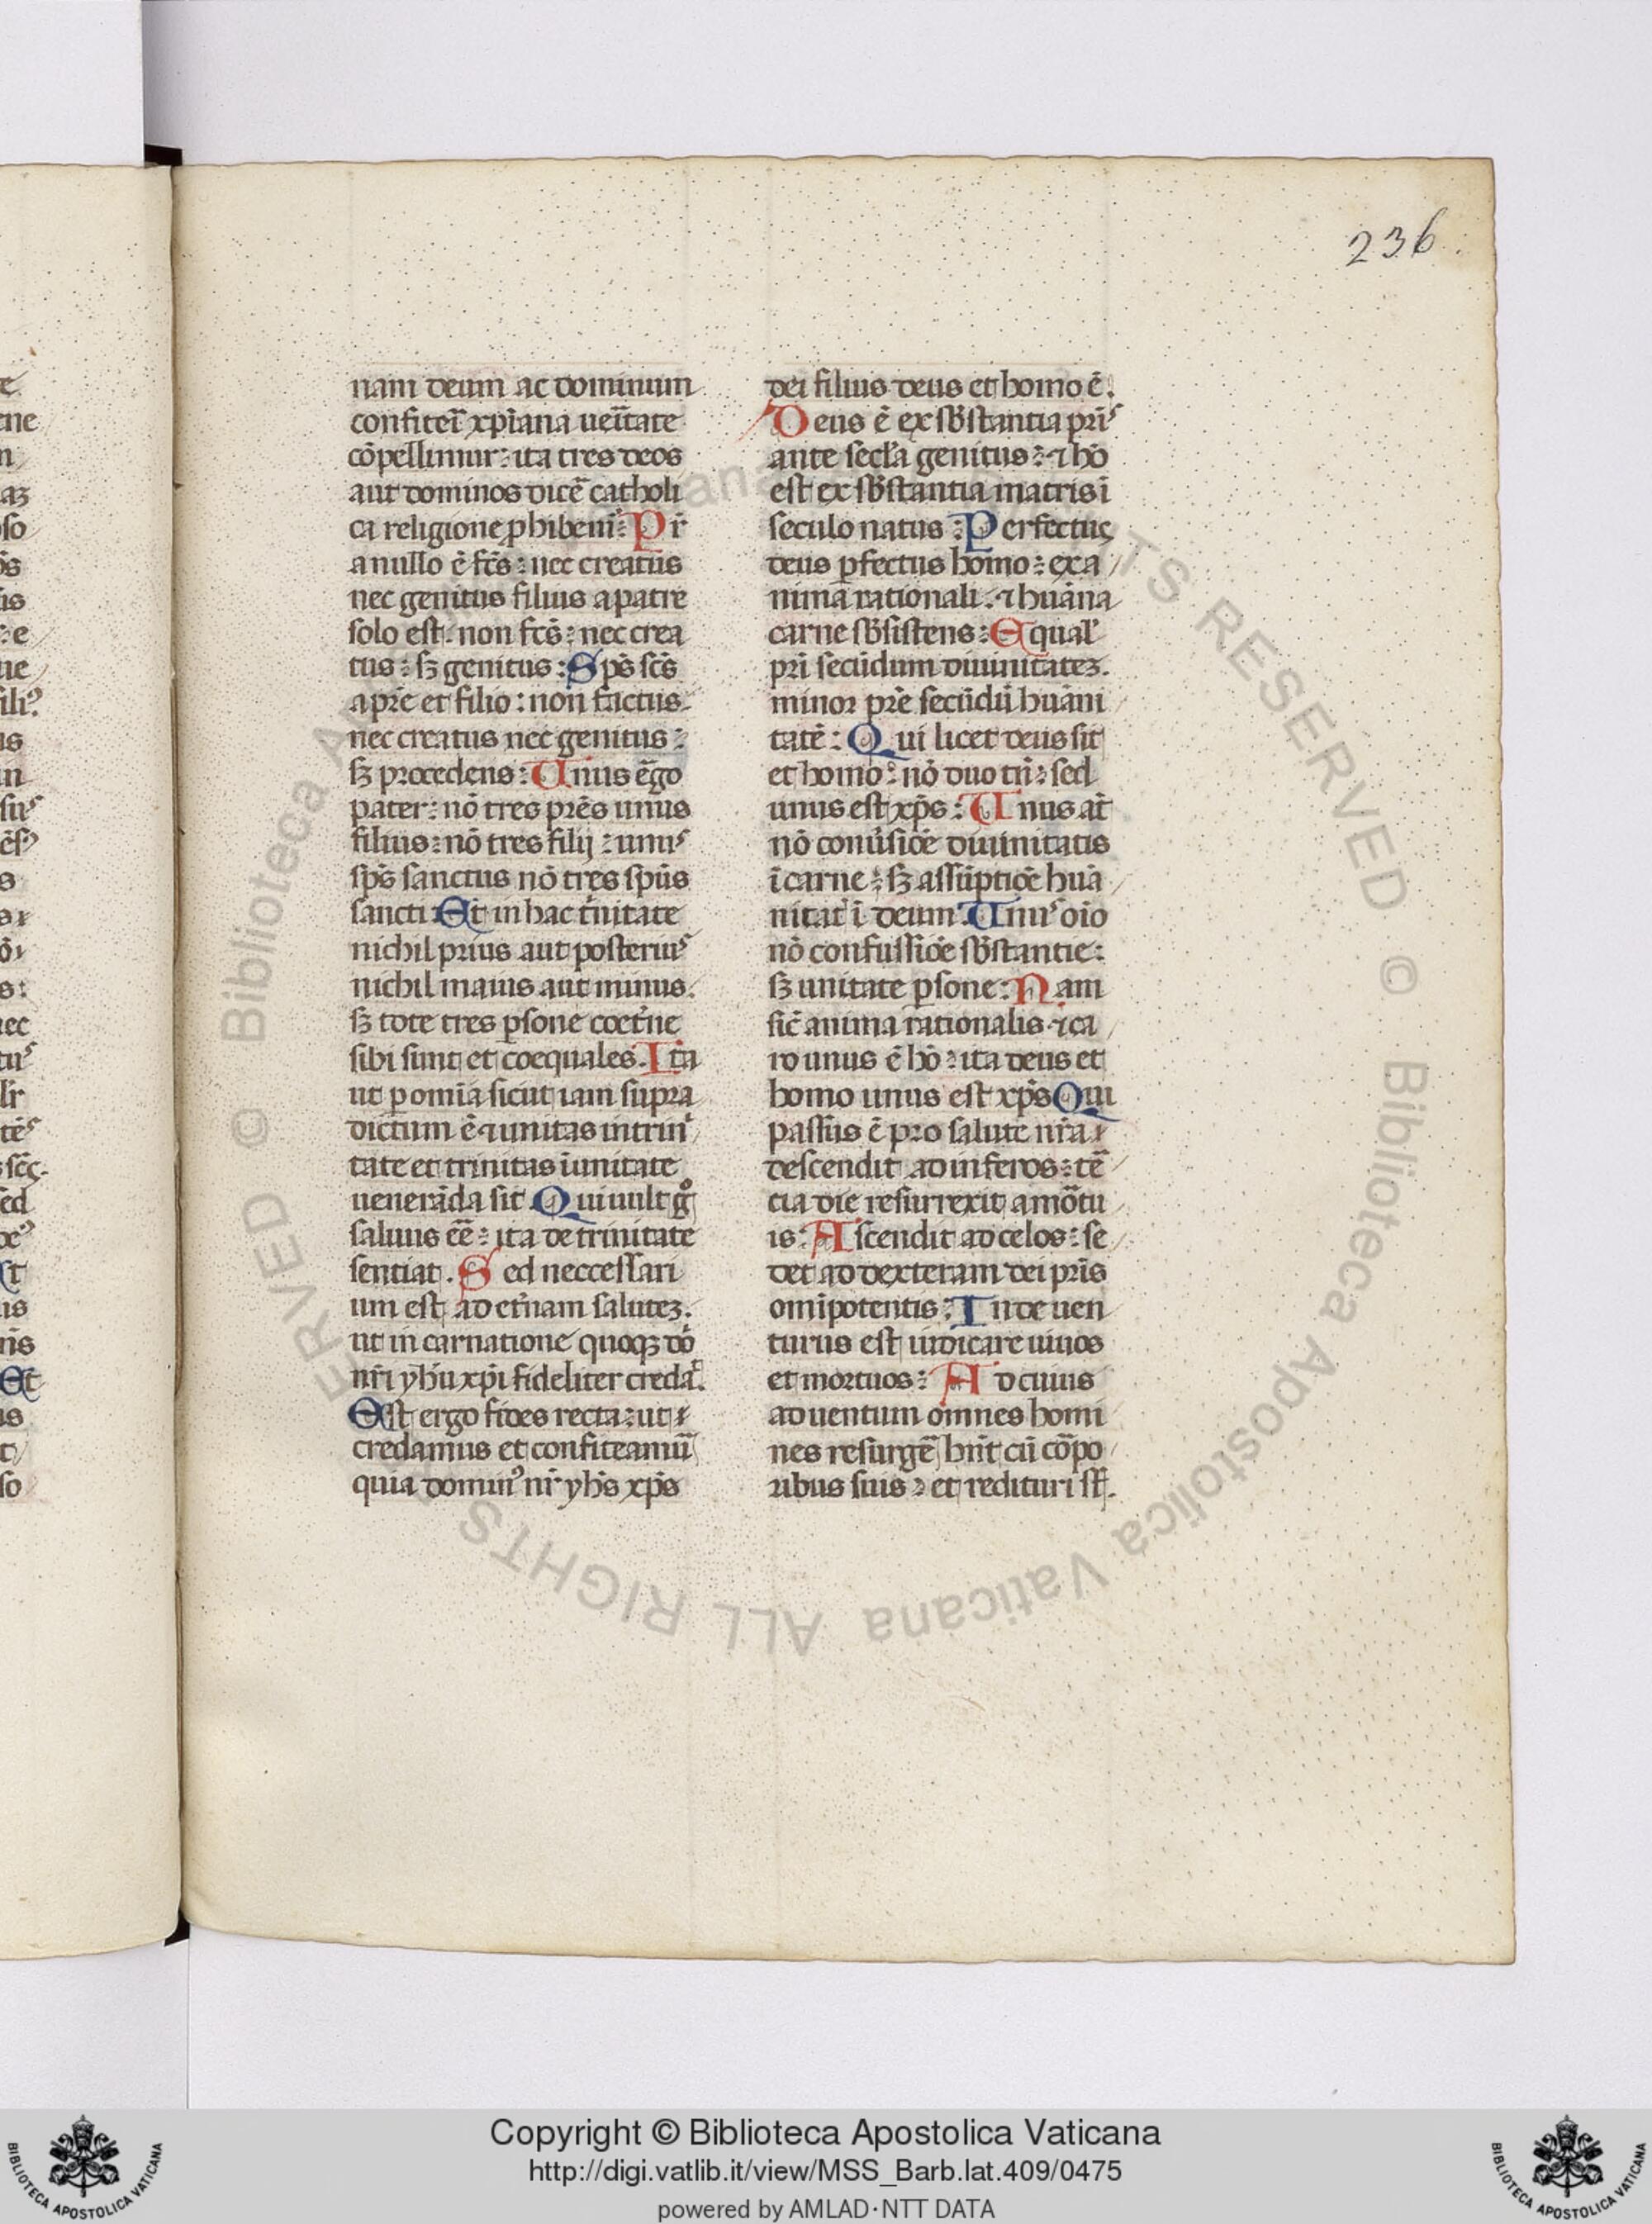 236
nam deum ac dominum
confitei᷑ xp̄iana uei᷑tate
cōpellimur : ita tres deos
aut dominos dic̄e catholi
ca religione ꝓhibem᷑ : Pr̄
a nullo ē fc̄s : nec creatus
nec genitus filius a patre
solo est . non fc̄s : nec crea
tus : sꝫ genitus : Sp̄s sc̄s
a pr̄e et filio : non factus .
nec creatus nec genitus :
sꝫ procedens : Unus ēgo
pater : nō tres pr̄es unus
filius : nō tres filij : unuˢ
sp̄s sanctus nō tres sp̄us
sancti : Et in hac t̄nitate
nichil prius aut posteriuˢ
nichil maius aut minus .
sꝫ tote tres ꝑsone coet̄ne
sibi sunt et coequales . Ita
ut ꝑ omīa sicut iam supra
dictum ē ⁊ unitas in trinⁱ
tate et trinitas ī unitate
ueneranda sit Qui uult gͦ
saluus eē : ita de trinitate
sentiat . Sed neccessari
um est ad et̄nam salutez .
ut in carnatione quoqꝫ dō
nr̄i yhū xp̄i fideliter credaᷓ .
Est ergo fides recta : ut ⁊
credamus et confiteamū
quia dominꝰ nr̄ yh̄s xp̄s
dei filius deus et homo ē .
Deus ē ex sƀstantia pr̄iˢ
ante secl̄a genitus : ⁊ hō
est ex sƀstantia matris ī
seculo natus : Perfectus
deus ꝑfectus homo : ex a
nima rationali . ⁊ huāna
carne sƀsistens : Equal̄
pr̄i secūdum diuinitatez .
minor pr̄e secūdū huāni
tatē : Qui licet deus sit
et homo : nō duo tn̄ : sed
unus est xp̄s : Unus at̄
nō conu̓siōe diuinitatis
ī carne : sꝫ assūptiōe huā
nitat̄ ī deum . Unuˢ oīo
nō confussiōe sƀstantie :
sꝫ unitate ꝑsone : Nam
sic̄ anima rationalis ⁊ ca
ro unus ē hō : ita deus et
homo unus est xp̄s Qui
passus ē pro salute nr̄a ⁊
descendit ad inferos : tē
cia die resurrexit a mōtu
is : Ascendit ad celos : se
det ad dexteram dei pr̄is
omīpotentis : Inde uen
turus est iudicare uiuos
et mortuos : Ad cuius
ad uentum omnes homi
nes resurgē hn̄t cū cōpo
ribus suis : et redituri st̄ .
© Biblioteca Apostolica Vaticana ALL RIGHTS RESERVED
Copyright © Biblioteca Apostolica Vaticana
http://digi.vatlib.it/view/MSS_Barb.lat.409/0475
powered by AMLAD·NTT DATA
BIBLIOTECA APOSTOLICA VATICANA
BIBLIOTECA APOSTOLICA VATICANA